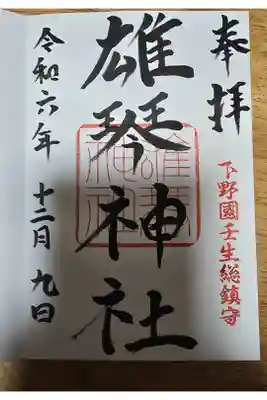 奉拝
下野國壬生総鎮守
雄琴神社
令和六年 十二月 九日